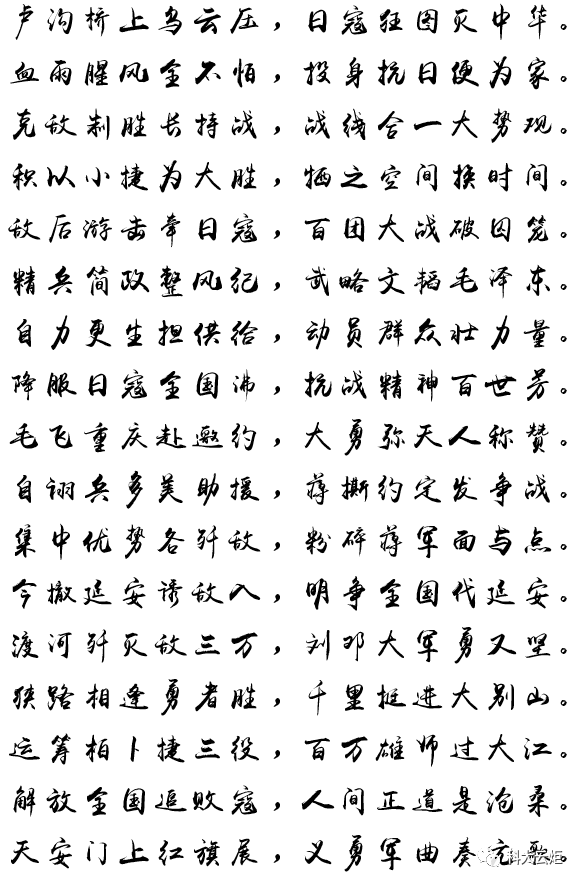 卢沟桥上乌云压，日寇狂图灭中华。
血雨腥风全不怕，投身抗日便为家。
克敌制胜长持战，战线合一大势观。
积以小捷为大胜，牺之空间换时间。
敌后游击牵日寇，百团大战破囚笼。
精兵简政整风纪，武略文韬毛泽东。
自力更生担供给，动员群众壮力量。
降服日寇全国沸，抗战精神百世芳。
毛飞重庆赴邀约，大勇弥天人称赞。
自诩兵多美助援，蒋撕约定发争战。
集中优势各歼敌，粉碎蒋军面与点。
今撤延安诱敌入，明争全国代延安。
渡河歼灭敌三万，刘邓大军勇又坚。
狭路相逢勇者胜，千里挺进大别山。
运筹柏卜捷三役，百万雄师过大江。
解放全国追败寇，人间正道是沧桑。
天安门上红旗展，义勇军曲奏亢歌。
科大云炬